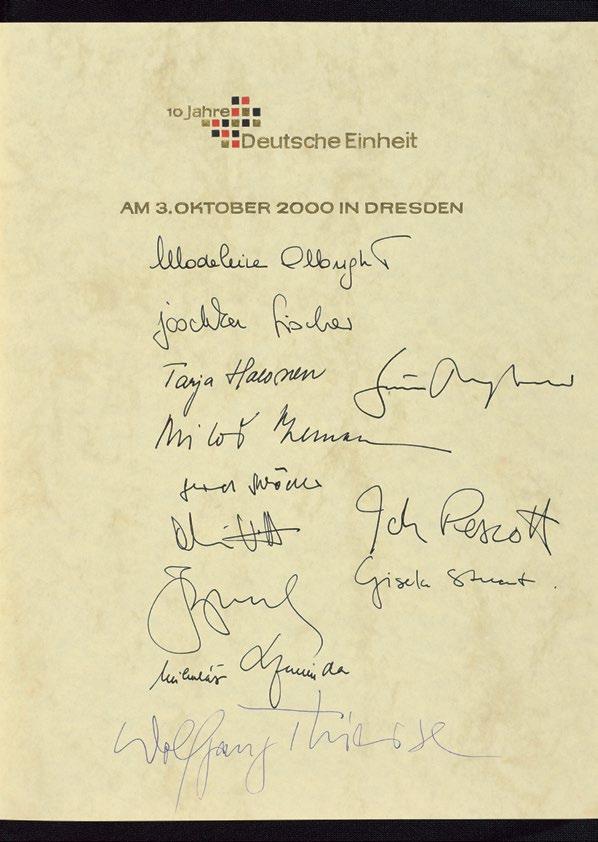 10 Jahre
Deutsche Einheit
AM 3. OKTOBER 2000 IN DRESDEN
Madeleine Albright
Joschka Fischer
Tarja Halonen
Miloš Zeman
Gerd Schröder
John Prescott
Gisela Stuart.
Mikuláš Dzurinda
Wolfgang Thierse